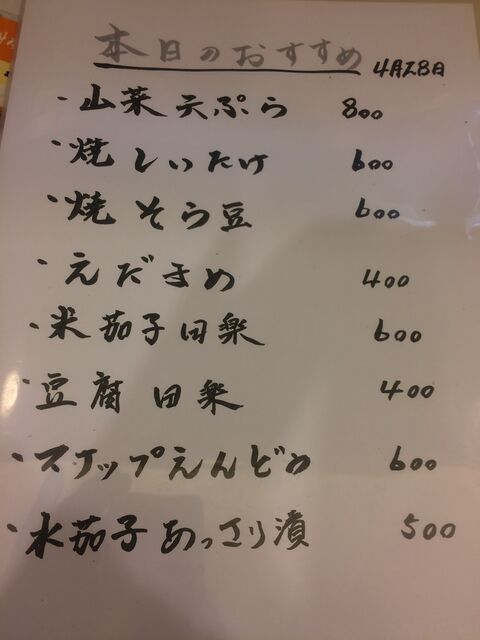 本日のおすすめ 4月28日
・山菜天ぷら 800
・焼しいたけ 600
・焼そら豆 600
・えだまめ 400
・米茄子田楽 600
・豆腐田楽 400
・スナップえんどう 600
・水茄子あっさり漬 500